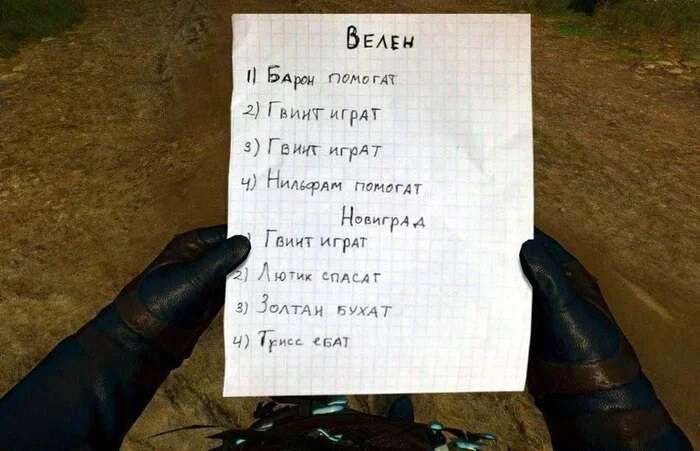 Велен
1) Барон помогат
2) Гвинт играт
3) Гвинт играт
4) Нильфам помогат
Новиград
1) Гвинт играт
2) Лютик спасат
3) Золтан бухат
4) Трисс ебат